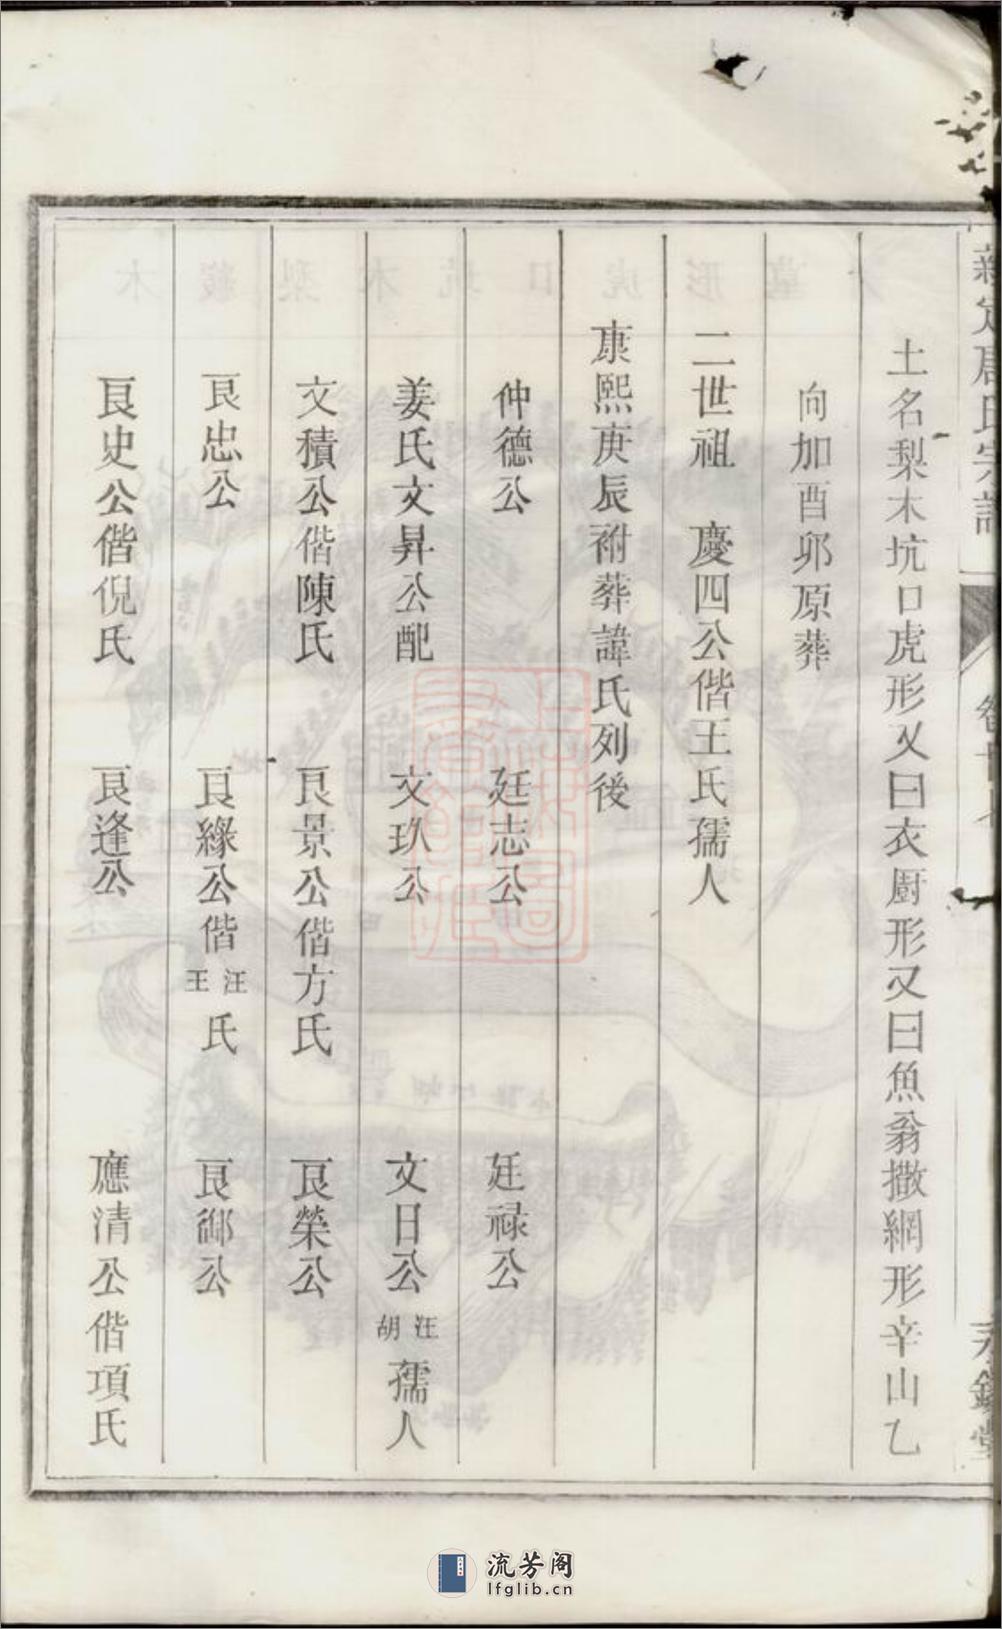 土名梨木坑口虎形又曰衣厨形又曰魚翁撒網形辛山乙
向加酉卯原葬
二世祖　慶四公偕王氏孺人
康熙庚辰祔葬諱氏列後
仲德公　廷志公　廷禄公
姜氏文昇公配　文玖公　文日公汪胡孺人
文積公偕陳氏　艮景公偕方氏　艮榮公
艮忠公　艮緣公偕汪王氏　艮鄉公
艮史公偕倪氏　艮逢公　應清公偕項氏
流芳阁
lfglib.cn